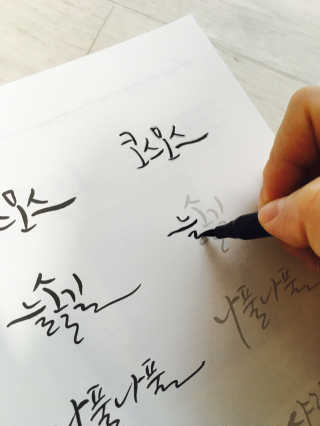 코스모스
스모스
늘솔길
늘솔길
나풀나풀
나풀나풀